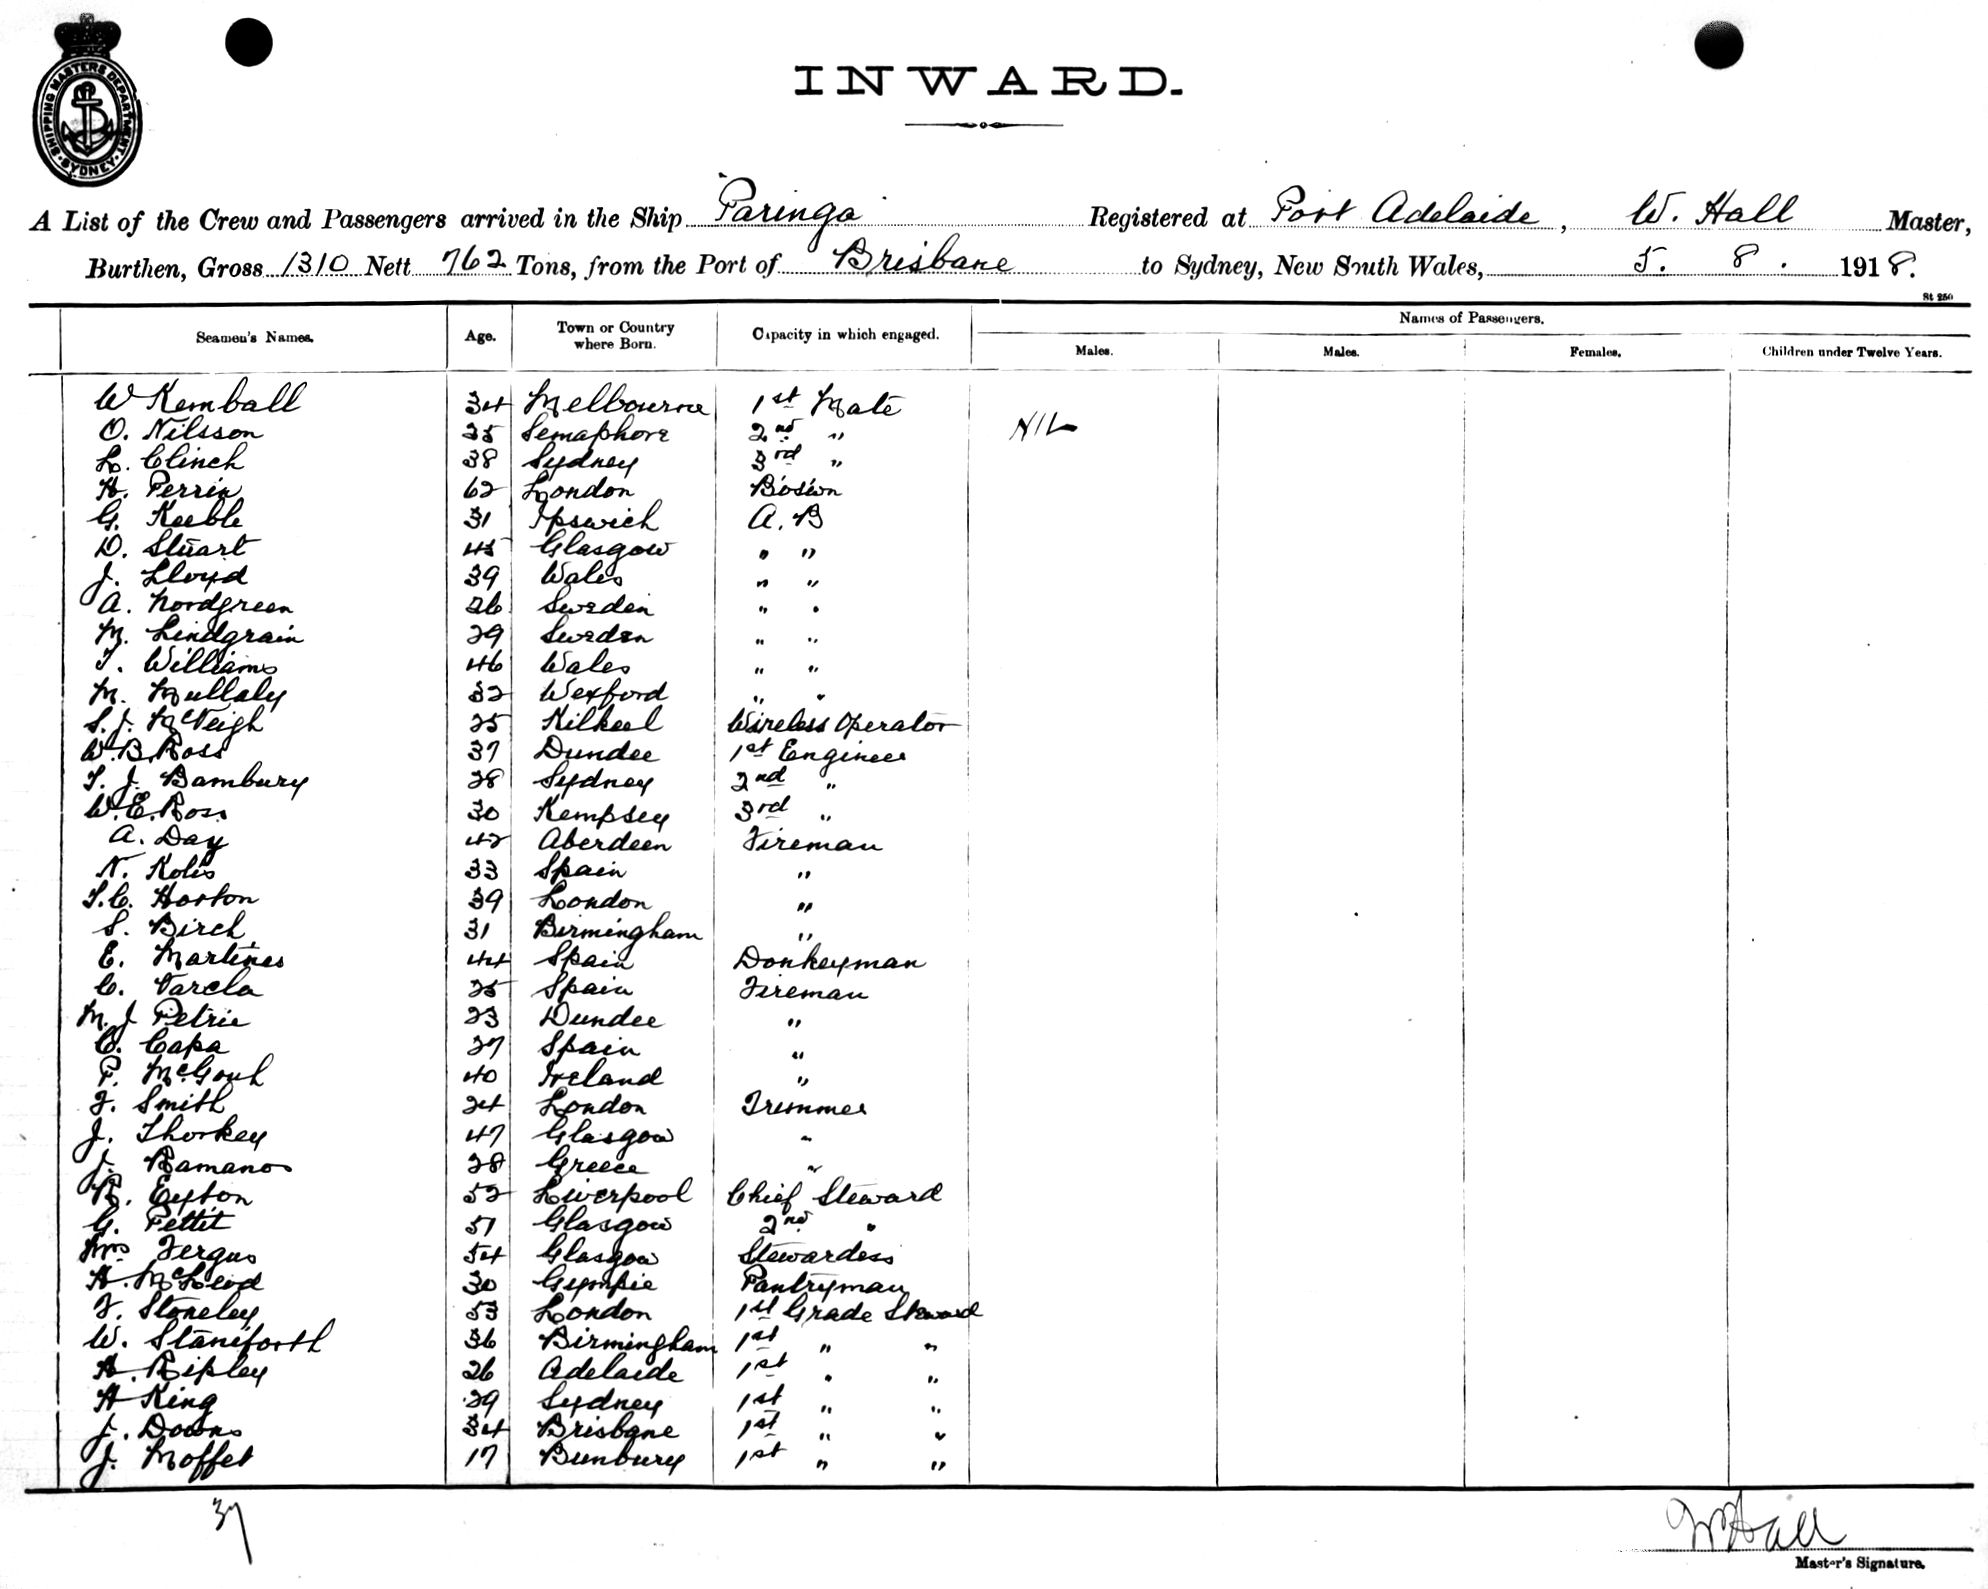 SHIPPING MASTERS DEPARTMENT. SYDNEY.
INWARD.
A List of the Crew and Passengers arrived in the Ship Paringa Registered at Port Adelaide, W. Hall Master,
Burthen, Gross 1310 Nett 762 Tons, from the Port of Brisbane to Sydney, New South Wales, 5. 8. 1918.
St 250
Seamen's Names. Age. Town or Country where Born. Capacity in which engaged. Names of Passengers.
Males. Males. Females. Children under Twelve Years.
W Kemball 34 Melbourne 1st Mate
O. Nilsson 25 Semaphore 2nd " NIL
L. Clinch 38 Sydney 3rd "
H. Perrin 62 London Bosun
G. Keeble 31 Ipswich A.B
D. Stuart 45 Glasgow " "
J. Lloyd 39 Wales " "
A. Nordgreen 26 Sweden " "
M. Lindgrain 29 Sweden " "
T. Williams 46 Wales " "
M. Mullaly 32 Wexford " "
S. J. McVeigh 25 Kilkeel Wireless Operator
W. B. Ross 37 Dundee 1st Engineer
T. J. Bambury 28 Sydney 2nd "
W. E. Ross 30 Kempsey 3rd "
A. Day 42 Aberdeen Fireman
N. Kolis 33 Spain "
T. C. Horton 39 London "
S. Birch 31 Birmingham "
E. Martines 44 Spain Donkeyman
C. Varela 25 Spain Fireman
M. J Petrie 23 Dundee "
C. Capa 27 Spain "
P. 40 Ireland "
F. Smith 24 London Trimmer
J. Thorkey 47 Glasgow "
J. Ramanos 28 Greece "
R. Eyton 52 Liverpool Chief Steward
G. Pettit 51 Glasgow 2nd "
Mrs Fergus 54 Glasgow Stewardess
H. McLeod 30 Gympie Pantryman
F. Stoneley 53 London 1st Grade Steward
W. Staniforth 36 Birmingham 1st " "
H. Ripley 26 Adelaide 1st " "
H King 29 Sydney 1st " "
J. Downs 34 Brisbane 1st " "
J. Moffet 17 Bunbury 1st " "
37
W Hall
Master's Signature.